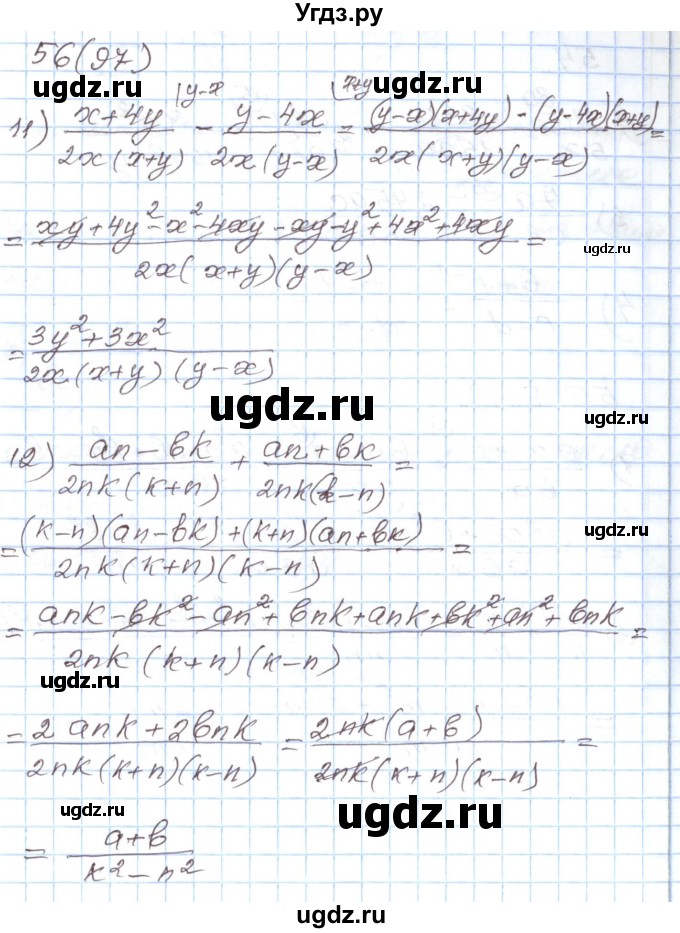 Угдз.ру
56(97)
ugdz.ru
11) (x+4y)/(2x(x+y)) |y-x - (y-4x)/(2x(y-x)) |x+y = ((y-x)(x+4y)-(y-4x)(x+y))/(2x(x+y)(y-x)) =
= (xy+4y²-x²-4xy-xy-y²+4x²+4xy)/(2x(x+y)(y-x)) =
ugdz.ru
= (3y²+3x²)/(2x(x+y)(y-x))
ugdz.ru
ugdz.ru
12) (an-bk)/(2nk(k+n)) + (an+bk)/(2nk(k-n)) =
ugdz.ru
= ((k-n)(an-bk)+(k+n)(an+bk))/(2nk(k+n)(k-n)) =
= (ank-bk²-an²+bnk+ank+bk²+an²+bnk)/(2nk(k+n)(k-n)) =
ugdz.ru
= (2ank+2bnk)/(2nk(k+n)(k-n)) = (2nk(a+b))/(2nk(k+n)(k-n)) =
ugdz.ru
ugdz.ru
= (a+b)/(k²-n²)
ugdz.ru
ugdz.ru